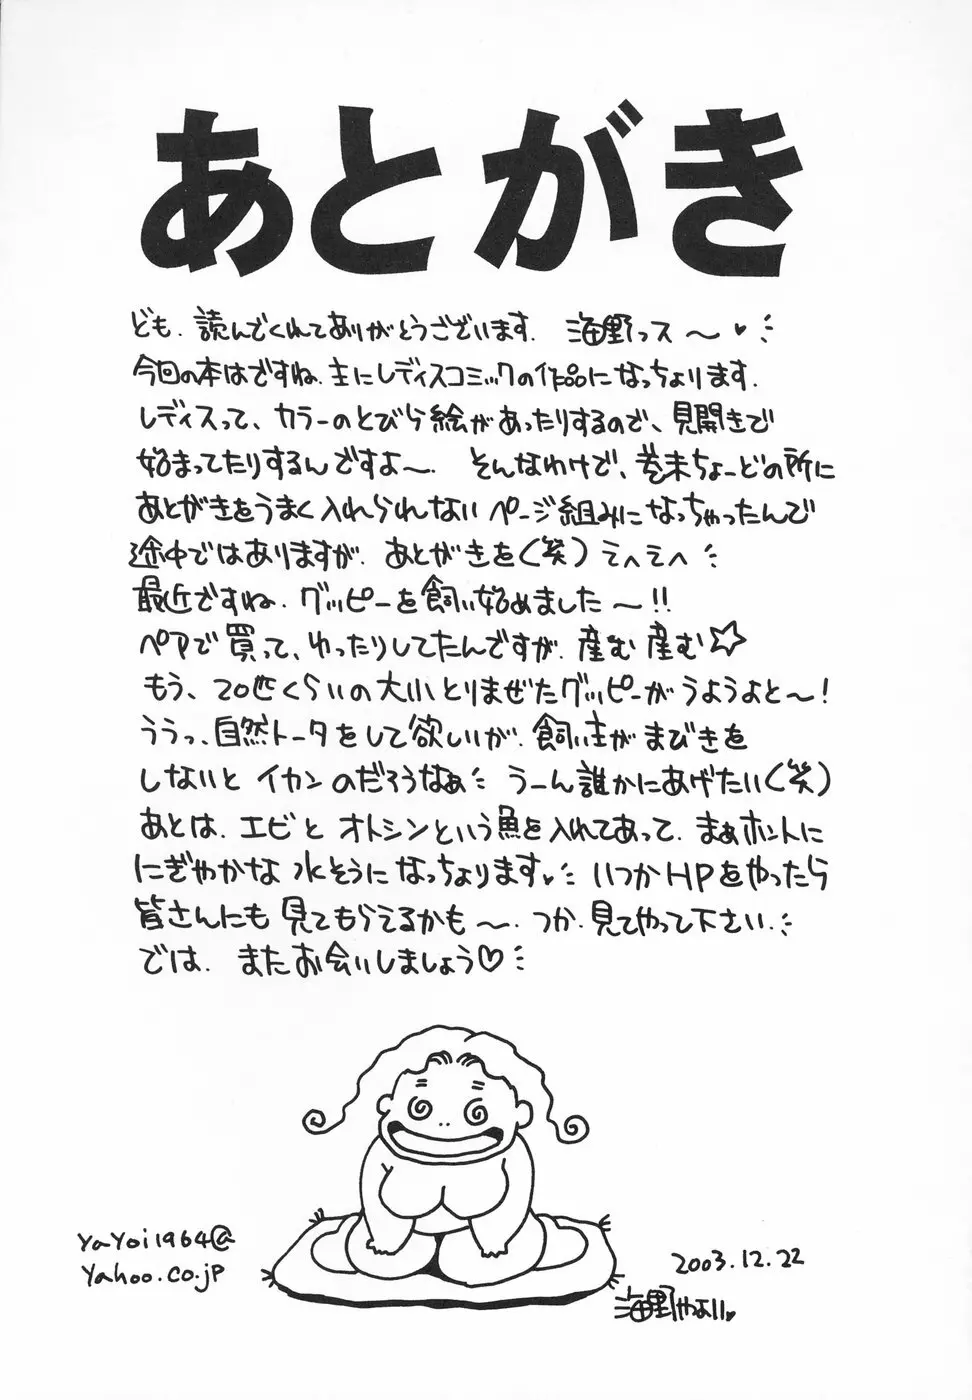 あとがき
ども、読んでくれてありがとうございます。海野っス〜♥
今回の本はですね、主にレディスコミックの作品になっちょります。
レディスって、カラーのとびら絵があったりするので、見開きで
始まってたりするんですよ〜。そんなわけで、巻末ちょーどの所に
あとがきをうまく入れられないページ組みになっちゃったんで
途中ではありますが、あとがきを(笑)えへえへ
最近ですね、グッピーを飼い始めました〜!!
ペアで買って、ゆったりしてたんですが、産む産む☆
もう、20匹くらいの大小とりまぜたグッピーがうようよと〜!
ううっ、自然トータをして欲しいが、飼い主がまびきを
しないとイカンのだろうなぁ うーん誰かにあげたい(笑)
あとは、エビとオトシンという魚を入れてあって、まぁホントに
にぎやかな水そうになっちょります♥いつかHPをやったら
皆さんにも見てもらえるかも〜。つか、見てやって下さい。
では、またお会いしましょう♡
yayoi1964@
yahoo.co.jp
2003.12.22
海野やよい♥